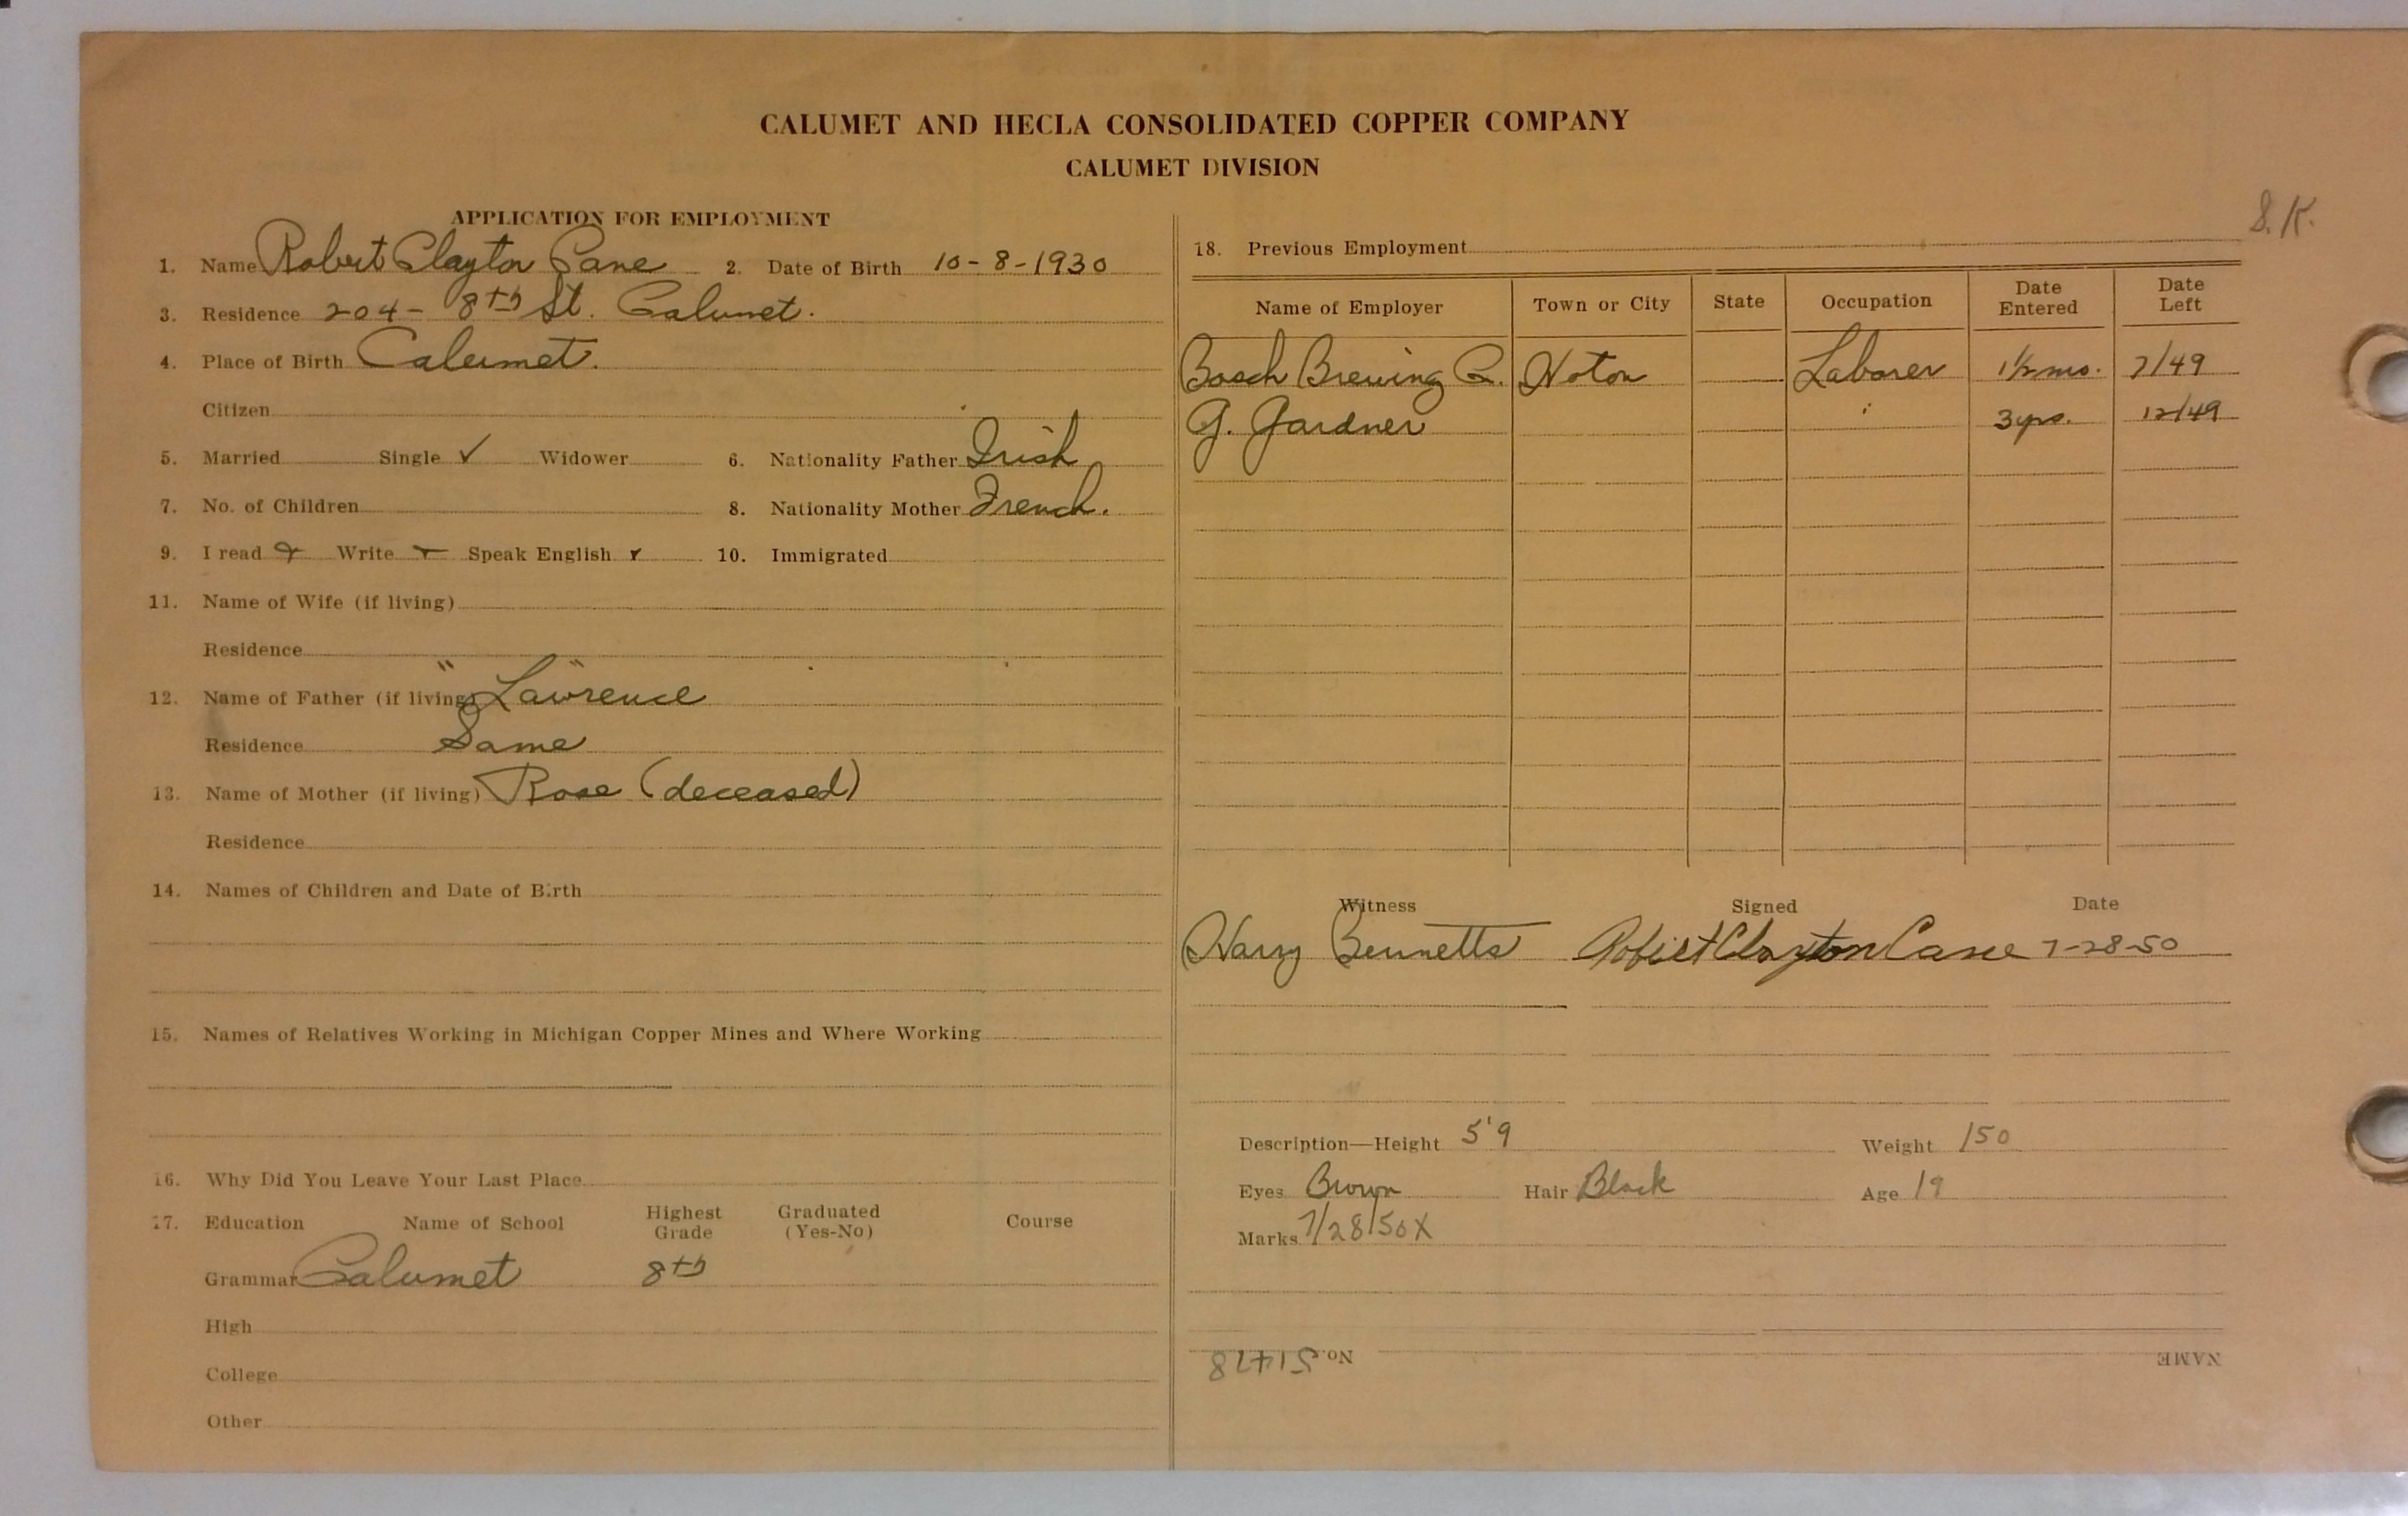 CALUMET AND HECLA CONSOLIDATED COPPER COMPANY
CALUMET DIVISION
S.K.
APPLICATION FOR EMPLOYMENT
1. Name Robert Clayton Cane 2. Date of Birth 10-8-1930
3. Residence 204- 8th St. Calumet.
4. Place of Birth Calumet.
Citizen
5. Married Single ✓ Widower 6. Nationality Father Irish
7. No. of Children 8. Nationality Mother French.
9. I read ✓ Write ✓ Speak English ✓ 10. Immigrated
11. Name of Wife (if living)
Residence " "
12. Name of Father (if living) Lawrence
Residence Same
13. Name of Mother (if living) Rose (deceased)
Residence
14. Names of Children and Date of Birth
15. Names of Relatives Working in Michigan Copper Mines and Where Working
16. Why Did You Leave Your Last Place
17. Education Name of School Highest Grade Graduated (Yes-No) Course
Grammar Calumet 8th
High
College
Other
18. Previous Employment
Name of Employer Town or City State Occupation Date Entered Date Left
Bosch Brewing Co. Hoton Laborer 1½ mo. 7/49
G. Gardner " 3 yrs. 12/49
Witness Signed Date
Harry Bennetts Robert Clayton Cane 7-28-50
Description—Height 5'9 Weight 150
Eyes Brown Hair Black Age 19
Marks 7/28/50 X
No. 51478 NAME